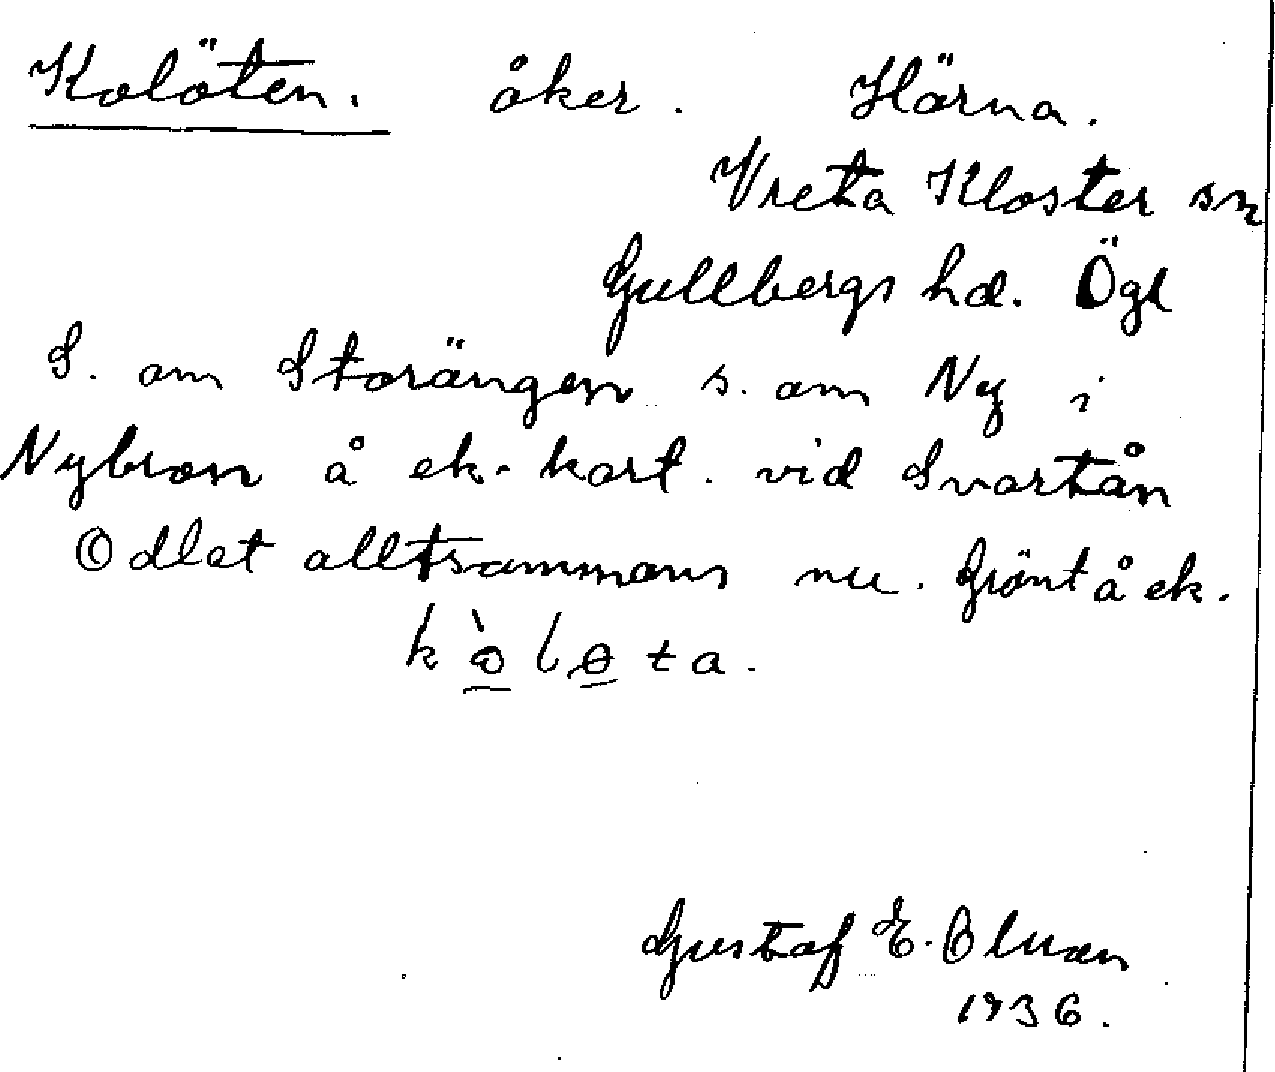 Kolöten. åker. Härna.
Vreta Kloster sn
Gullbergs hd. Ögl
S. om Storängen s. om Ny i
Nybron å ek. kart. vid Svartån
Odlat alltsammans nu. Grönt å ek.
Gustaf E.
1936.